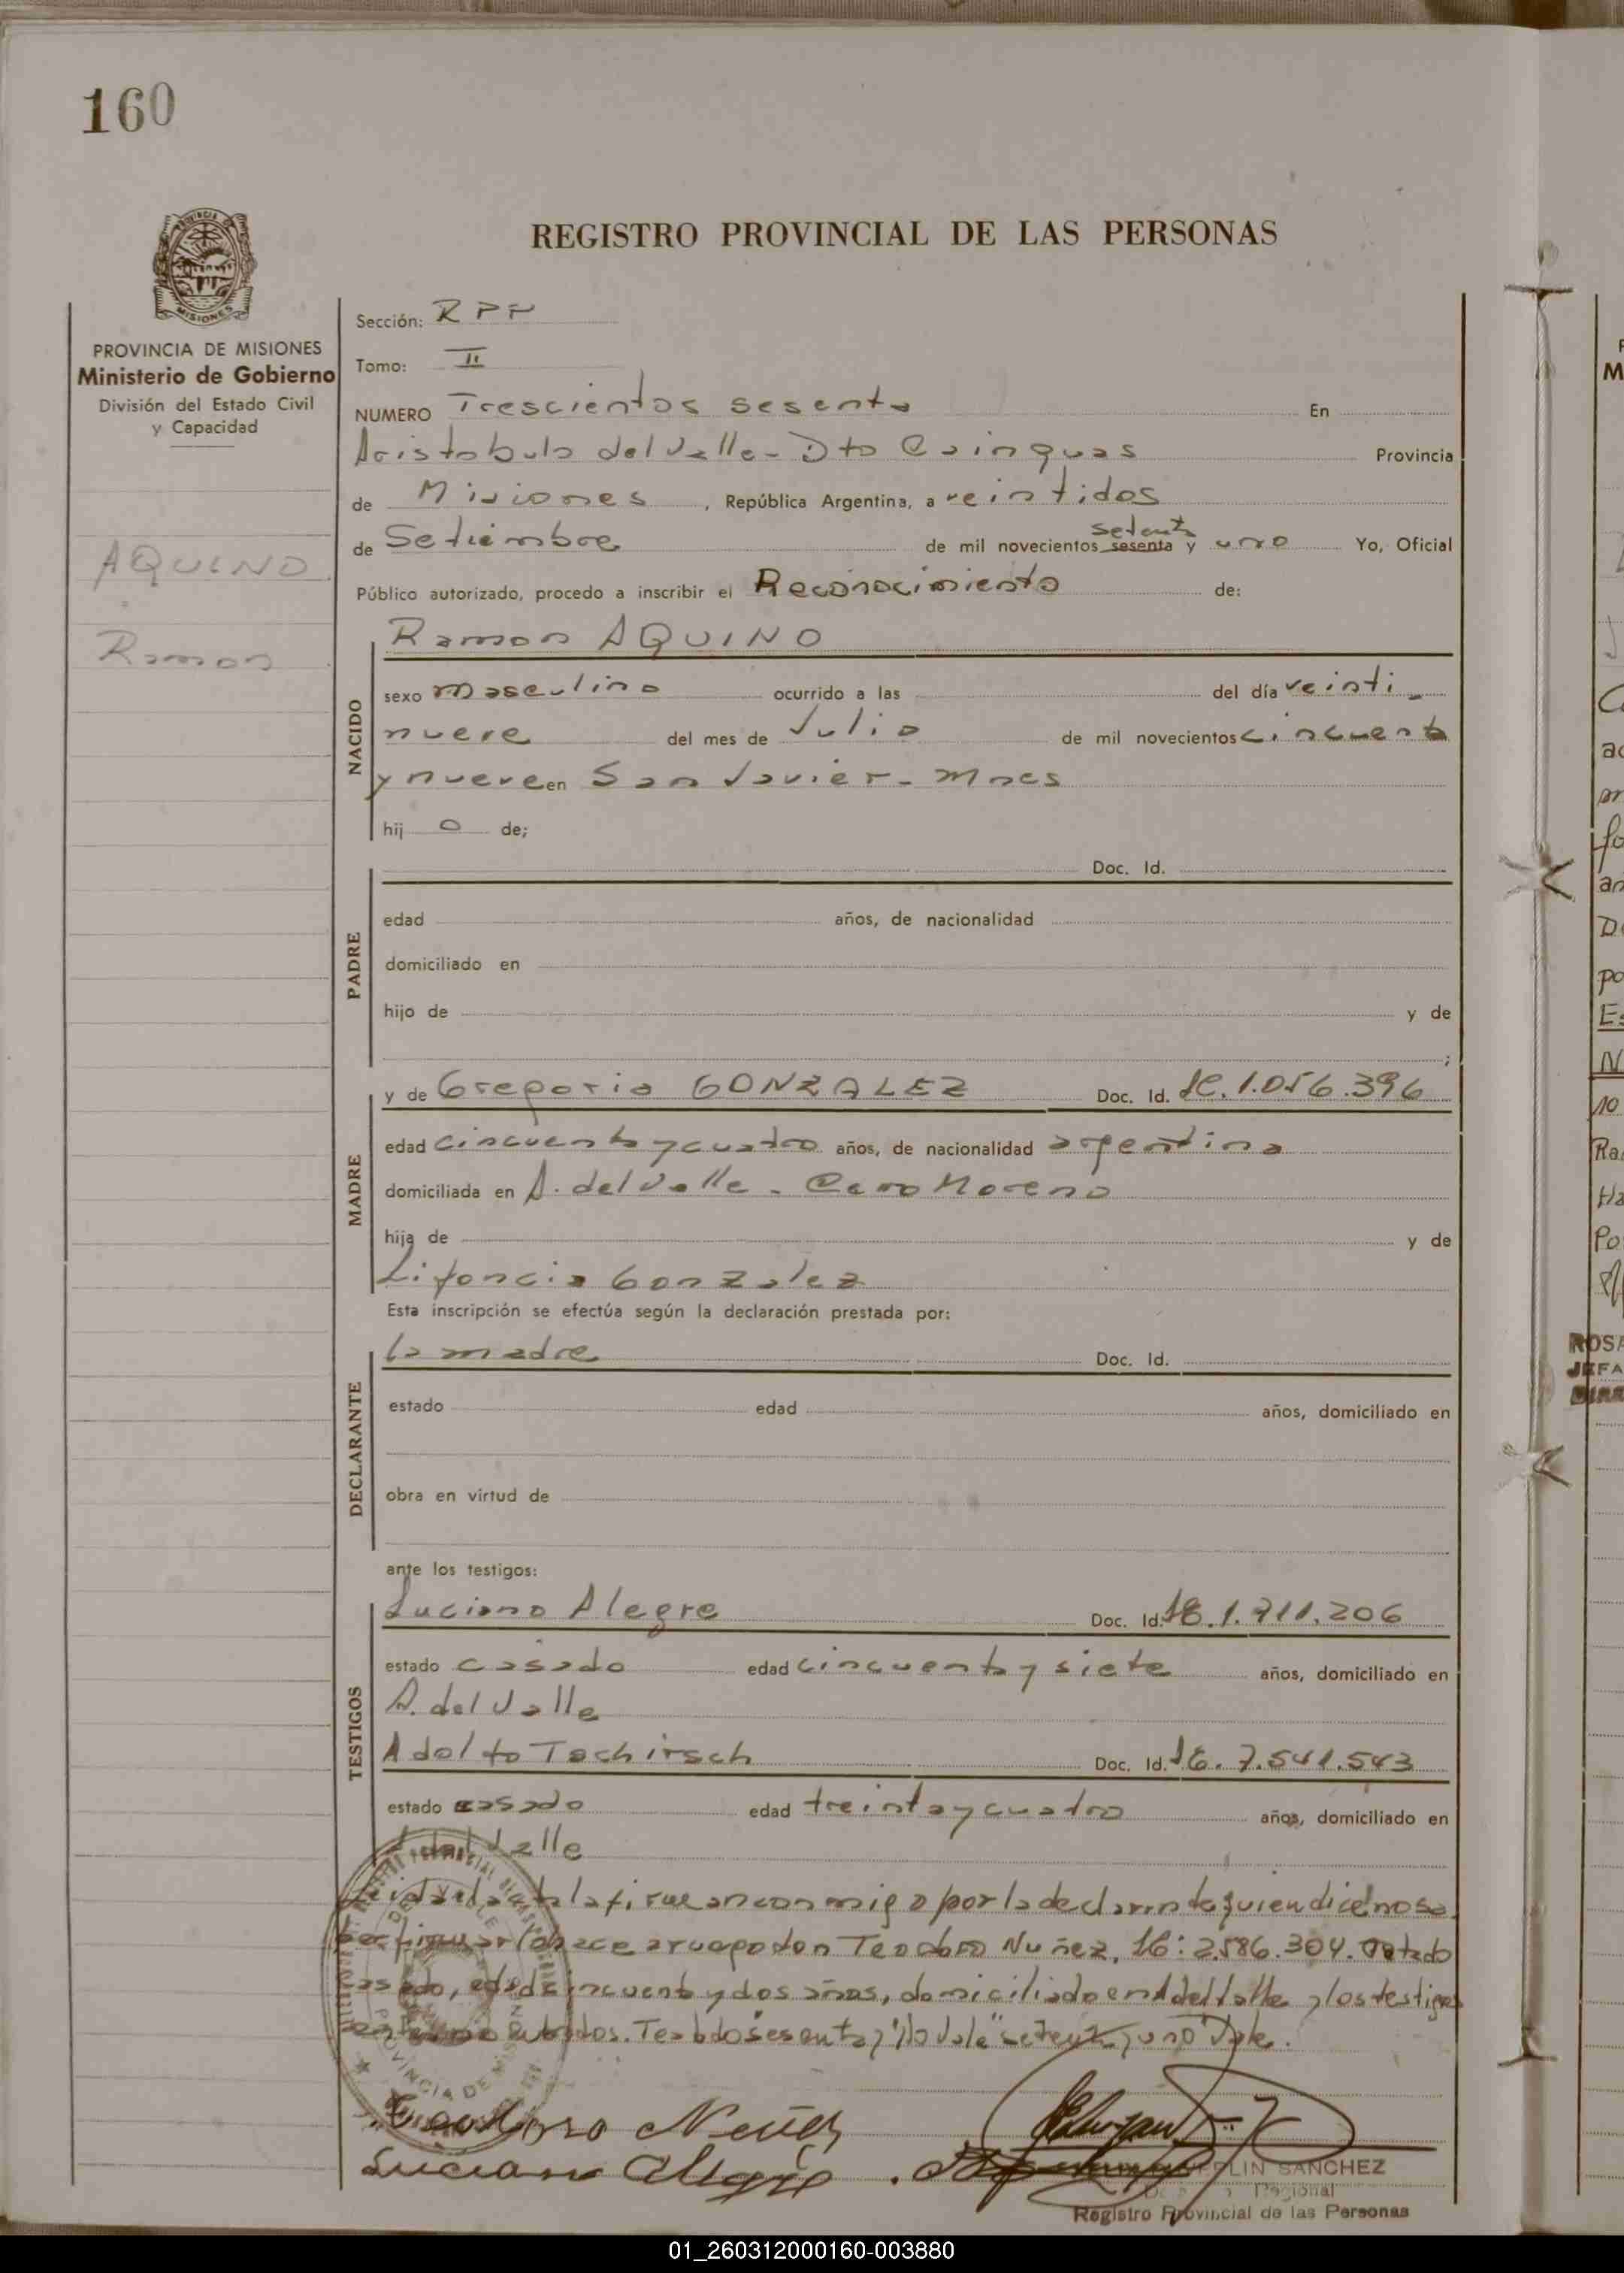 160
REGISTRO PROVINCIAL DE LAS PERSONAS
PROVINCIA DE MISIONES
Ministerio de Gobierno
División del Estado Civil
y Capacidad
AQUINO
Ramon
Sección:
Tomo: II
NUMERO Trescientos sesenta En
Aristobulo del Valle - Dto Cainguas Provincia
de Misiones, República Argentina, a veintidos
setenta
de Setiembre de mil novecientos sesenta y uno Yo, Oficial
Público autorizado, procedo a inscribir el Reconocimiento de:
NACIDO
Ramon AQUINO
sexo masculino ocurrido a las del día veinti-
nueve del mes de Julio de mil novecientos cincuenta
y nueve en San Javier - Mnes
hij o de;
PADRE
Doc. Id.
edad años, de nacionalidad
domiciliado en
hijo de y de
;
MADRE
y de Gregoria GONZALEZ Doc. Id. 1.056.396
edad cincuenta y cuatro años, de nacionalidad argentina
domiciliada en A. del Valle - Cerro Moreno
hija de y de
Gonzalez
Esta inscripción se efectúa según la declaración prestada por:
DECLARANTE
la madre Doc. Id.
estado edad años, domiciliado en
obra en virtud de
ante los testigos:
TESTIGOS
Luciano Alegre Doc. Id. 206
estado casado edad cincuenta y siete años, domiciliado en
A. del Valle
Adolfo Tschirsch Doc. Id. 7.541.543
estado casado edad treinta y cuatro años, domiciliado en
A del Valle
Leida el acta la firman conmigo por la declarante quien dice no sa
ber firmar lo hace a ruego don Teodoro Nuñez, 2.586.304. estado
casado, edad cincuenta y dos años, domiciliado en A del Valle y los testigos
Testado sesenta y "No Vale" setenta y uno Vale.
PROVINCIA DE MISIONES
Teodoro Nuñez
Luciano Alegre
SANCHEZ
Regional
Registro Provincial de las Personas
01_260312000160-003880